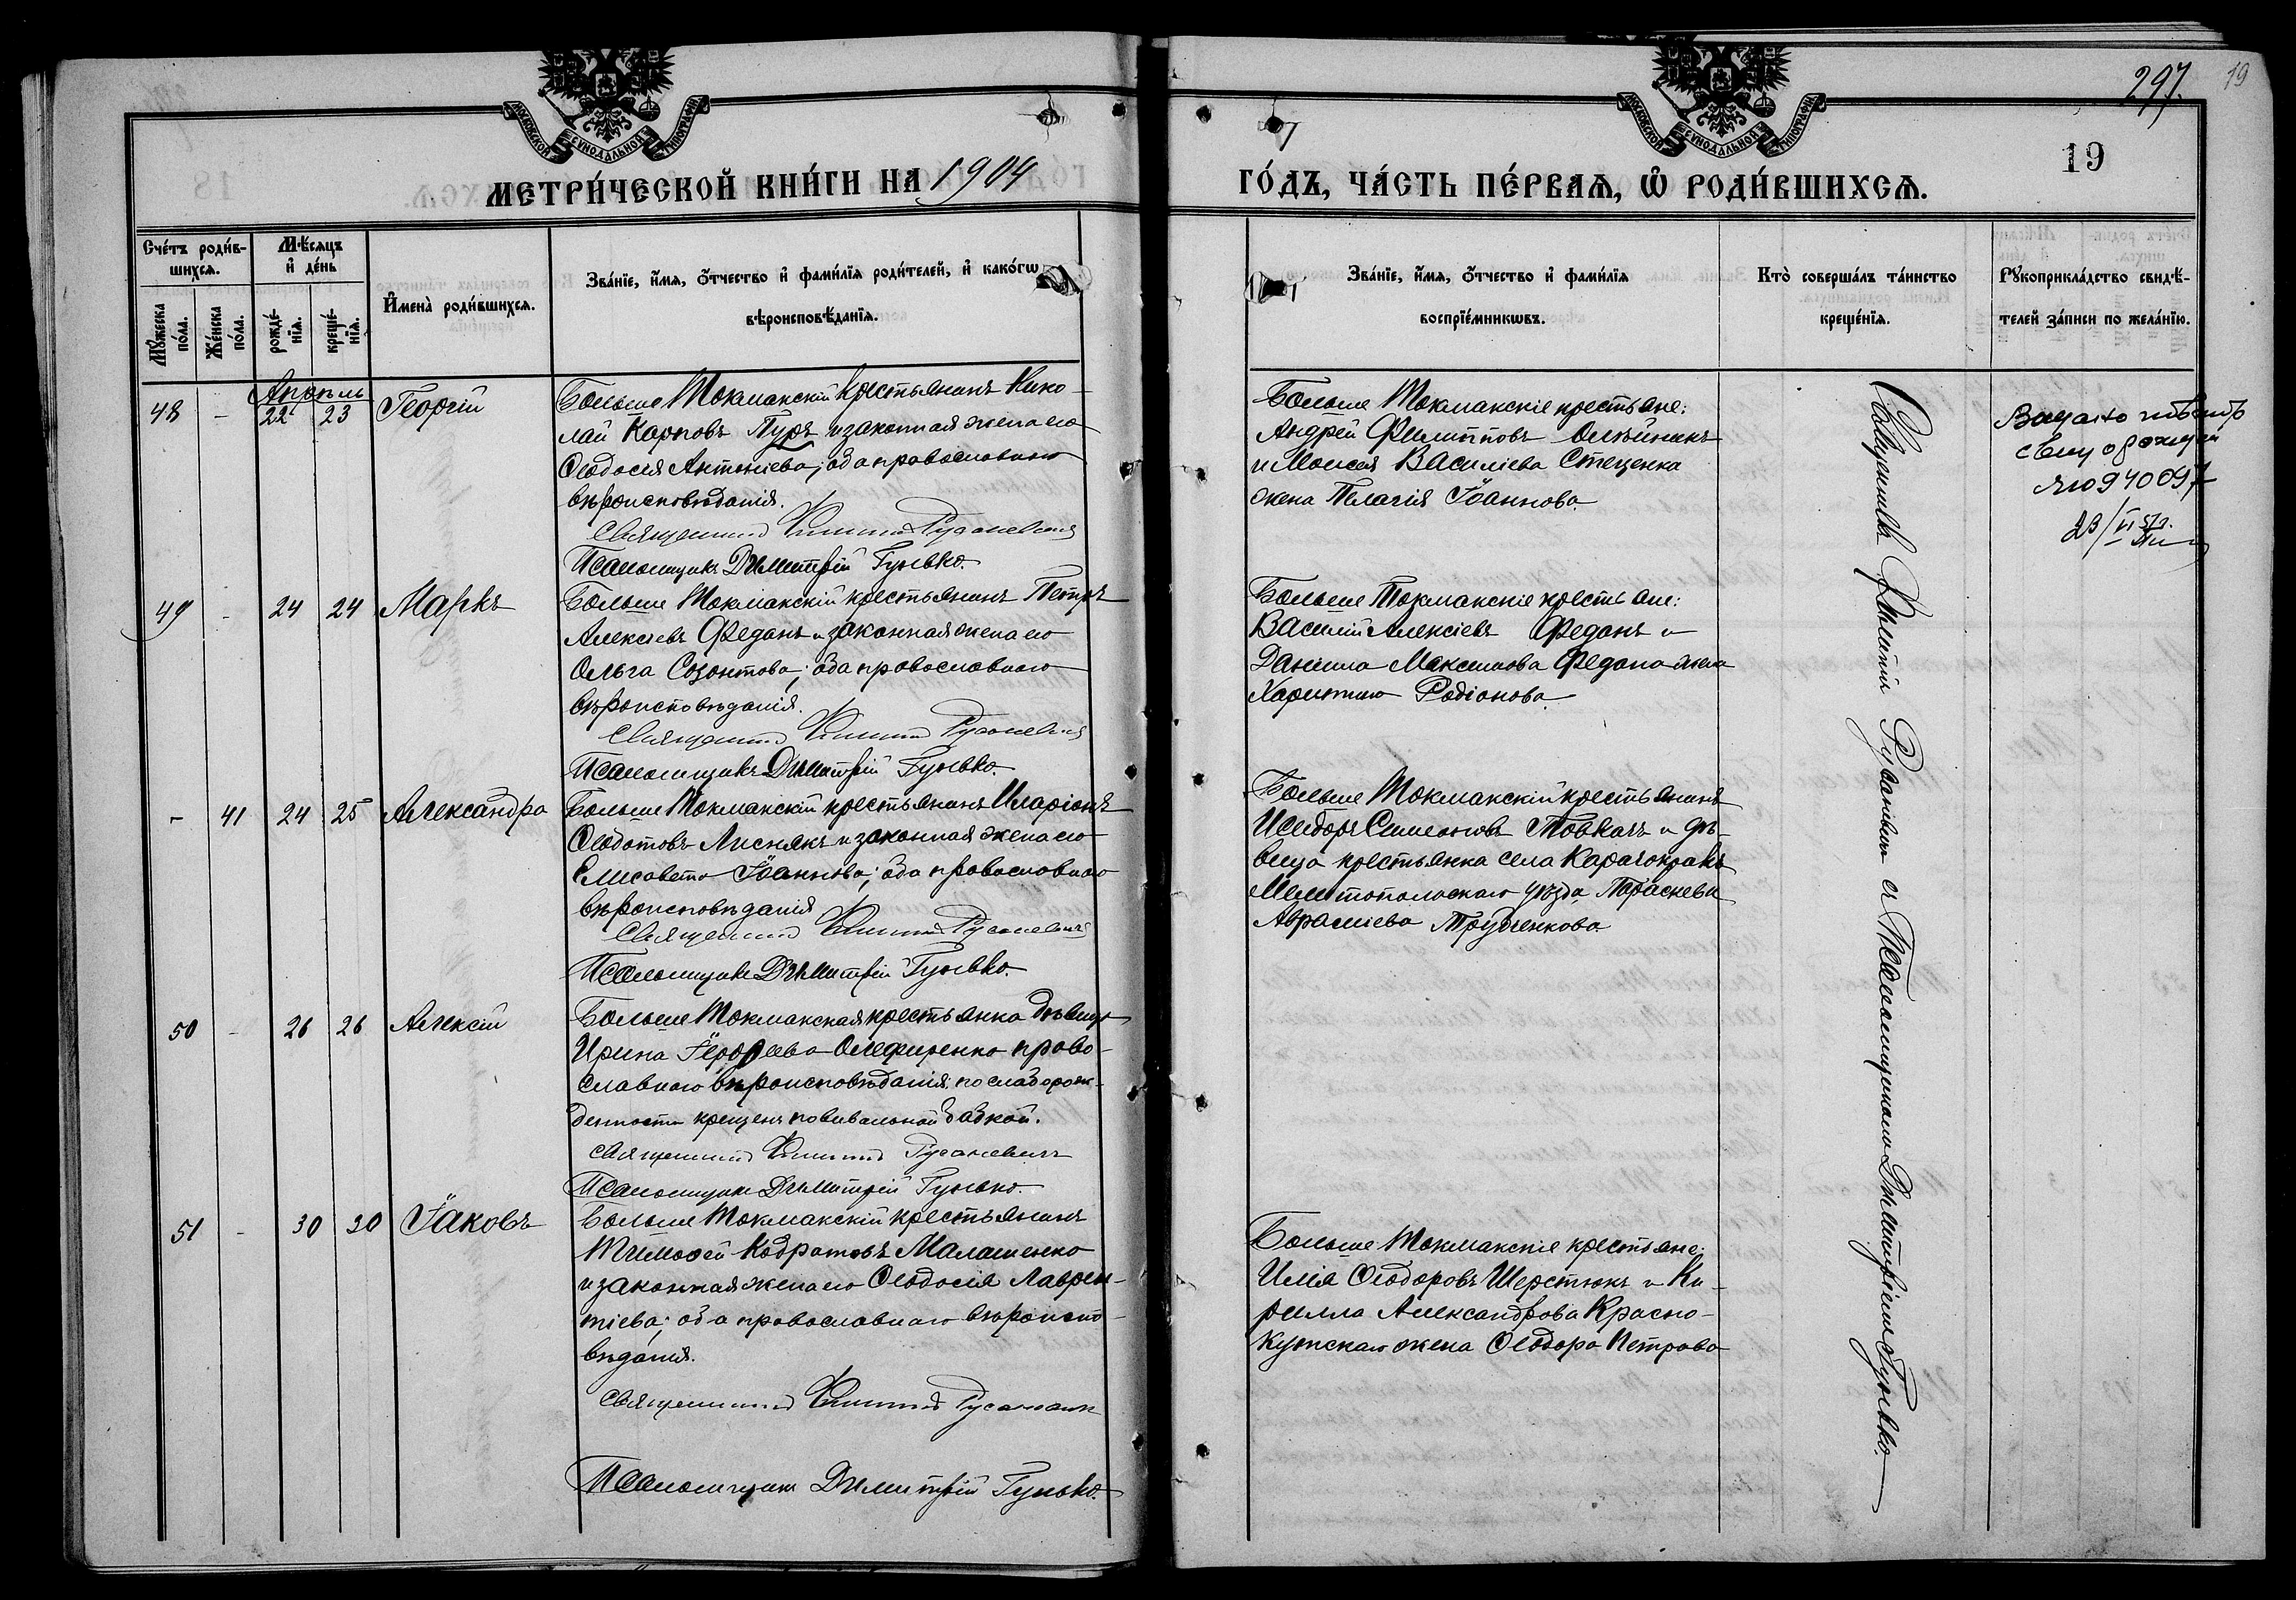 297.
19
19
МОСКОВСКОЙ СѴНОДАЛЬНОЙ ТИПОГРАФІИ
МОСКОВСКОЙ СѴНОДАЛЬНОЙ ТИПОГРАФІИ
МЕТРИ́ЧЕСКОЙ КНИ́ГИ НА 1904
ГО́ДЪ, ЧА́СТЬ ПЕ́РВАѦ, Ѡ҆ РОДИ́ВШИХСѦ.
Сче́тъ роди́в-
шихсѧ.
Мѣ́сѧцъ
и҆ де́нь
Мꙋ́жеска
по́ла.
Же́нска
по́ла.
рожде́-
нїѧ.
креще́-
нїѧ.
И҆мена̀ роди́вшихсѧ.
Зва́нїе, и҆́мѧ, ѻ҆́тчество и҆ фами́лїѧ роди́телей, и҆ како́гѡ
вѣроисповѣ́данїѧ.
Зва́нїе, и҆́мѧ, ѻ҆́тчество и҆ фами́лїѧ
воспрїе́мникѡвъ.
Кто̀ соверша́лъ та́инство
креще́нїѧ.
Рꙋкоприкла́дство свидѣ́-
телей за́писи по жела́нїю.
Апрѣль
48 - 22 23 Георгій
Больше Токмакскій крестьянинъ Нико-
лай Карповъ Пуръ и законная жена его
Ѳеодосія Антоніева; оба православнаго
вѣроисповѣданія.
Священникъ Филиппъ Русаневичъ
Псаломщикъ Димитрій Гунько.
Больше Токмакскіе крестьяне:
Андрей Филипповъ Олейникъ
и Моисея Василіева Стеценка
жена Пелагія Іоаннова.
Выдано
940097
23/VI
49 - 24 24 Маркъ
Больше Токмакскій крестьянинъ Петръ
Алексіевъ Феданъ и законная жена его
Ольга Созонтова; оба православнаго
вѣроисповѣданія.
Священникъ Филиппъ Русаневичъ
Псаломщикъ Димитрій Гунько.
Больше Токмакскіе крестьяне:
Василій Алексіевъ Феданъ и
Даніила Максимова Федана жена
Харитина Родіонова.
- 41 24 25 Александра
Больше Токмакскій крестьянинъ Иларіонъ
Ѳеодотовъ Лиснякъ и законная жена его
Елисавета Іоаннова; оба православнаго
вѣроисповѣданія
Священникъ Филиппъ Русаневичъ
Псаломщикъ Димитрій Гунько.
Больше Токмакскій крестьянинъ
Исидоръ Симеоновъ Товкачъ и дѣ-
вица крестьянка села Карачокракъ
Мелитопольскаго уѣзда Параскева
Авраміева Трубченкова.
50 - 26 26 Алексій
Больше Токмакская крестьянка дѣвица
Ирина Олефиренко право-
славнаго вѣроисповѣданія; по слаборож-
денности крещенъ повивальной бабкой.
Священникъ Филиппъ Русаневичъ
Псаломщикъ Димитрій Гунько.
51 - 30 30 Іаковъ
Больше Токмакскій крестьянинъ
Тимоѳей Кодратовъ Малашенко
и законная жена его Ѳеодосія Лаврен-
тіева; оба православнаго вѣроиспо-
вѣданія.
Священникъ Филиппъ Русаневичъ
Псаломщикъ Димитрій Гунько.
Больше Токмакскіе крестьяне:
Илія Ѳеодоровъ Шерстюкъ и Ки-
рилла Александрова Красно-
кутскаго жена Ѳеодора Петрова
Священникъ Филиппъ Русаневичъ съ Псаломщикомъ Димитріемъ Гунько.